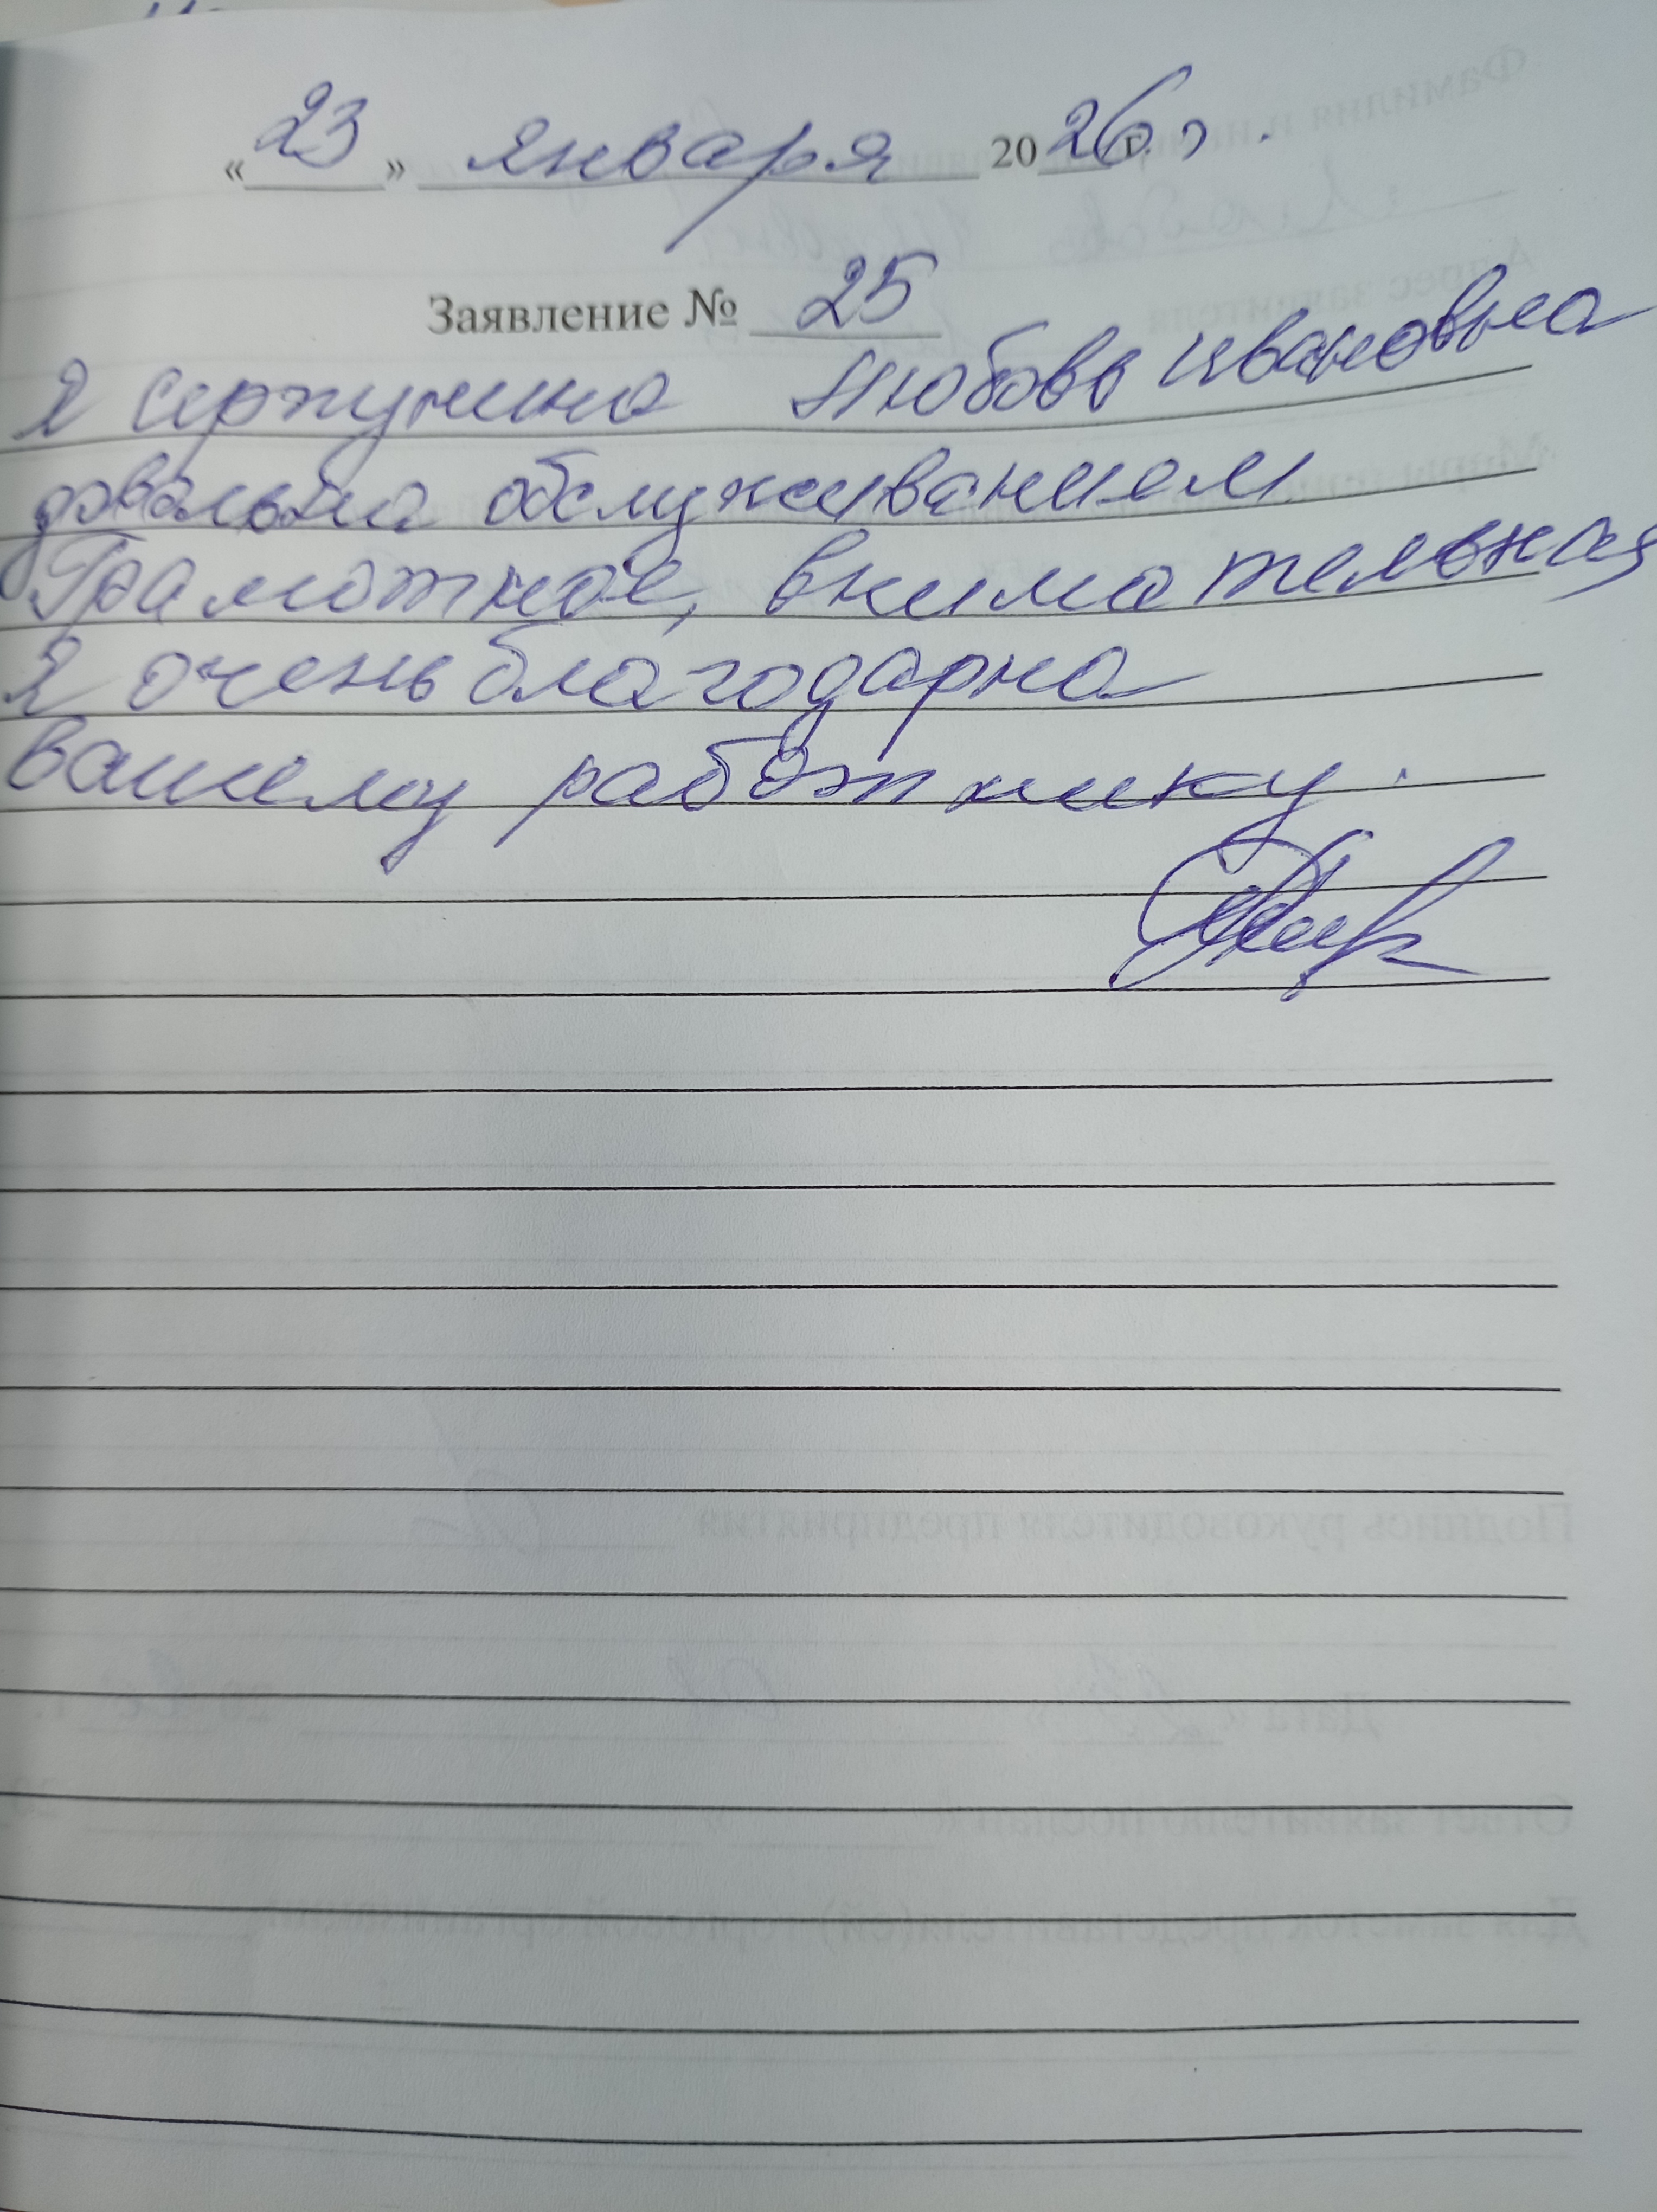 «23» января 2026 г.
Заявление № 25
Я Любовь Ивановна
довольна обслуживанием
Грамотное, внимательная
Я очень благодарна
вашему работнику.